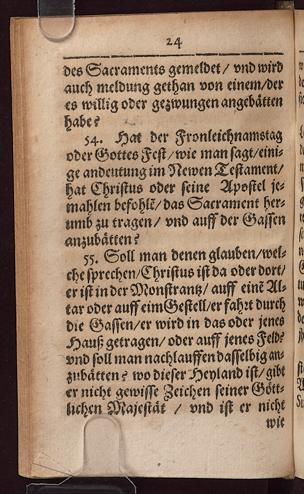 24
des Sacraments gemeldet / vnd wird
auch meldung gethan von einem / der
es willig oder gezwungen angebätten
habe?
54. Hat der Fronleichnamstag
oder Gottes Fest / wie man sagt / eini-
ge andeutung im Newen Testament /
hat Christus oder seine Apostel je-
mahlen befohlẽ / das Sacrament her-
umb zu tragen / vnd auff der Gassen
anzubätten?
55. Soll man denen glauben / wel-
che sprechen / Christus ist da oder dort /
er ist in der Monstrantz / auff einẽ Al-
tar oder auff eim Gestell / er fahrt durch
die Gassen / er wird in das oder jenes
Hauß getragen / oder auff jenes Feld?
vnd soll man nachlauffen dasselbig an-
zubätten? wo dieser Heyland ist / gibt
er nicht gewisse Zeichen seiner Gött-
lichen Majestät / vnd ist er nicht
wie